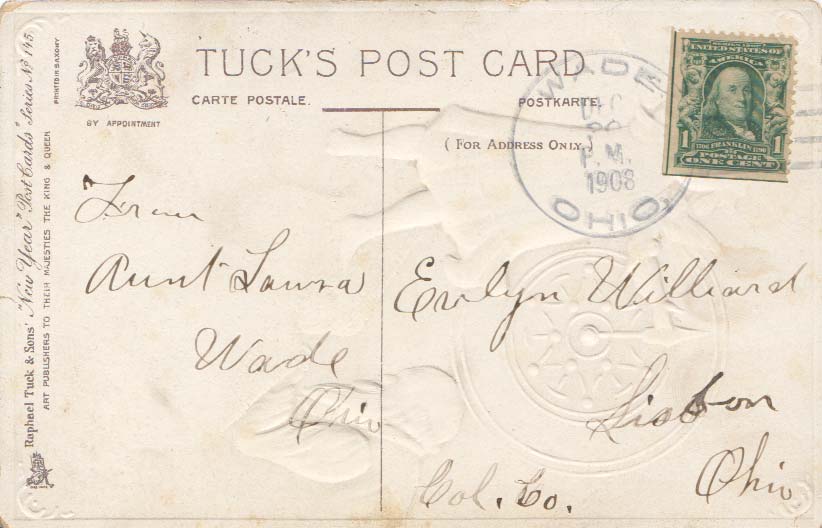 TUCK'S POST CARD
CARTE POSTALE.
POSTKARTE.
(FOR ADDRESS ONLY.)
BY APPOINTMENT
PRINTED IN SAXONY
Raphael Tuck & Sons' "New Year" Post Cards" Series No 145.
ART PUBLISHERS TO THEIR MAJESTIES THE KING & QUEEN
WADE
DEC
P.M.
1908
OHIO.
UNITED STATES OF
AMERICA
1 1
1706 FRANKLIN 1790
POSTAGE
ONE CENT
From
Aunt Laura
Wade
Ohio
Evelyn Williard
Lisbon
Col. Co.
Ohio